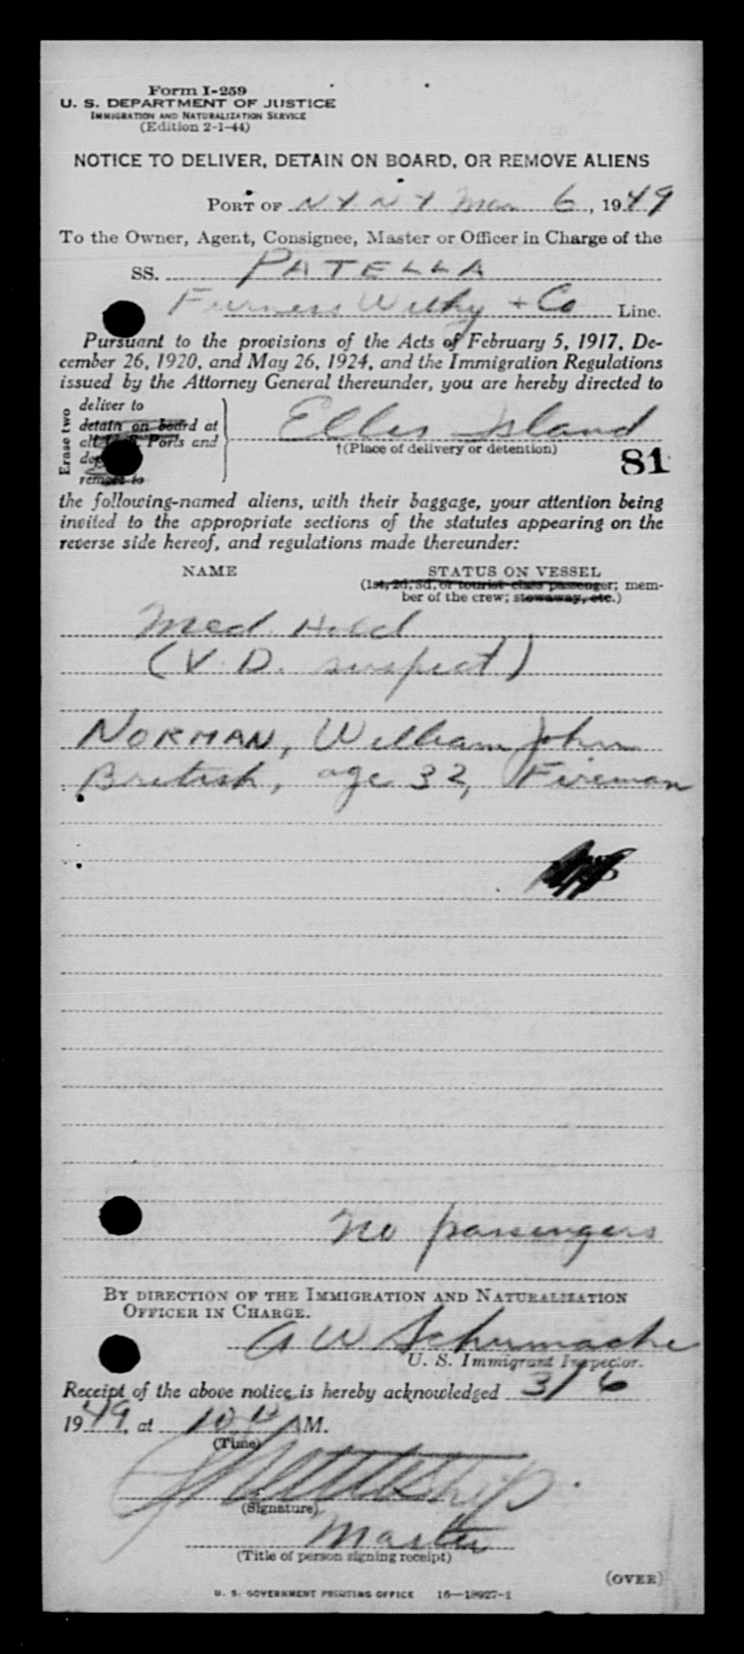 Form I-259
U. S. DEPARTMENT OF JUSTICE
IMMIGRATION AND NATURALIZATION SERVICE
(Edition 2-1-44)
NOTICE TO DELIVER, DETAIN ON BOARD, OR REMOVE ALIENS
PORT OF N Y N Y Mar 6, 1949
To the Owner, Agent, Consignee, Master or Officer in Charge of the
SS. PATELLA
Furness Withy + Co Line.
Pursuant to the provisions of the Acts of February 5, 1917, De-
cember 26, 1920, and May 26, 1924, and the Immigration Regulations
issued by the Attorney General thereunder, you are hereby directed to
Erase two
deliver to
detain on board at
all U. S. Ports and
remove to
Ellis Island
†(Place of delivery or detention)
81
the following-named aliens, with their baggage, your attention being
invited to the appropriate sections of the statutes appearing on the
reverse side hereof, and regulations made thereunder:
NAME STATUS ON VESSEL
(1st, 2d, 3d, or tourist class passenger; mem-
ber of the crew; stowaway, etc.)
Med. Hold
(V. D. suspect)
NORMAN, William John
British, age 32, Fireman
No passengers
BY DIRECTION OF THE IMMIGRATION AND NATURALIZATION
OFFICER IN CHARGE.
A W Schumacher
U. S. Immigrant Inspector.
Receipt of the above notice is hereby acknowledged 3/6
1949, at 10 AM.
(Time)
(Signature)
Master
(Title of person signing receipt)
(OVER)
U. S. GOVERNMENT PRINTING OFFICE 16—18927-1